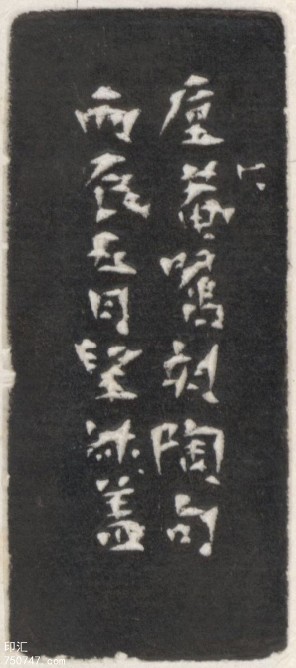 菴嘱刻陶句
丙辰五月望叔盖
印汇
750747.com